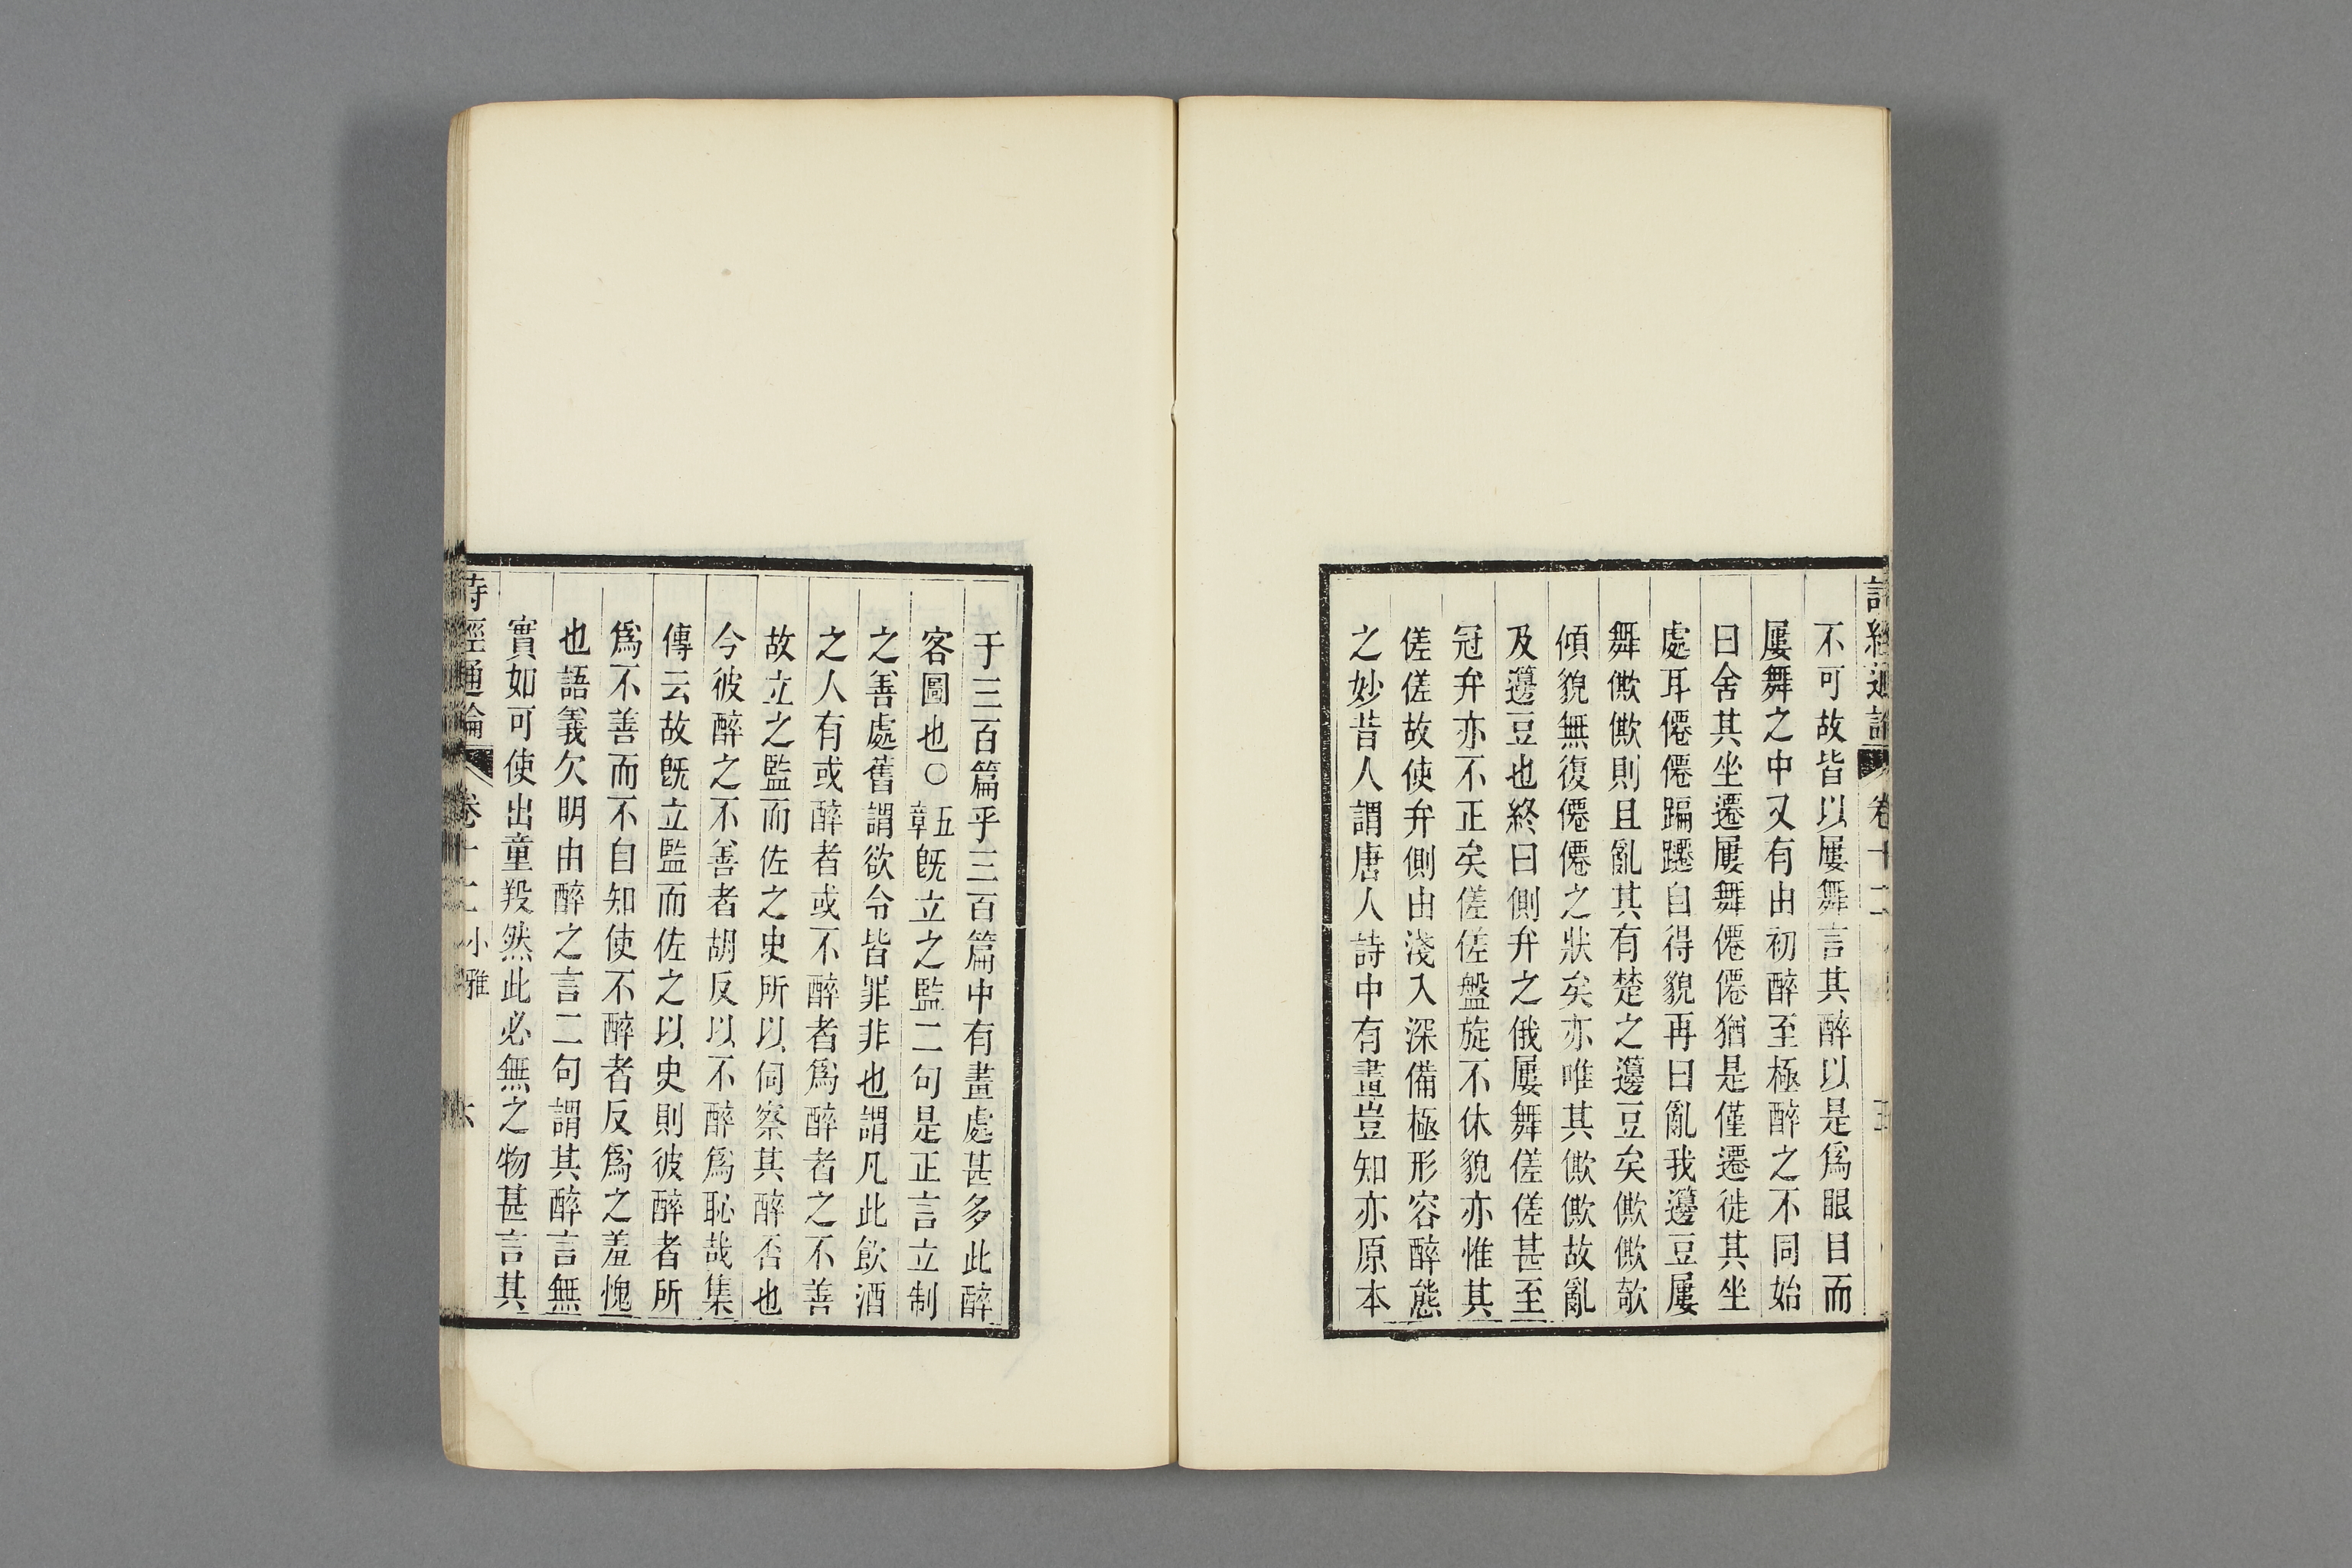 不可故皆以屢舞言其醉以是爲眼目而
屢舞之中又有由初醉至極醉之不同始
曰舍其坐遷屢舞僊僊猶是僅遷徙其坐
處耳僊僊蹁躚自得貌再曰亂我籩豆屢
舞僛僛則且亂其有楚之籩豆矣僛僛欹
傾貌無復僊僊之狀矣亦唯其僛僛故亂
及籩豆也終曰側弁之俄屢舞傞傞甚至
冠弁亦不正矣傞傞盤旋不休貌亦惟其
傞傞故使弁側由淺入深備極形容醉態
之妙昔人謂唐人詩中有畫豈知亦原本
于三百篇乎三百篇中有畫處甚多此醉
客圖也○五章旣立之監二句是正言立制
之善處舊謂欲令皆罪非也謂凡此飮酒
之人有或醉者或不醉者爲醉者之不善
故立之監而佐之史所以伺察其醉否也
今彼醉之不善者胡反以不醉爲恥哉集
傳云故旣立監而佐之以史則彼醉者所
爲不善而不自知使不醉者反爲之羞愧
也語義欠明由醉之言二句謂其醉言無
實如可使出童羖然此必無之物甚言其
詩經通論 卷十二 小雅 六